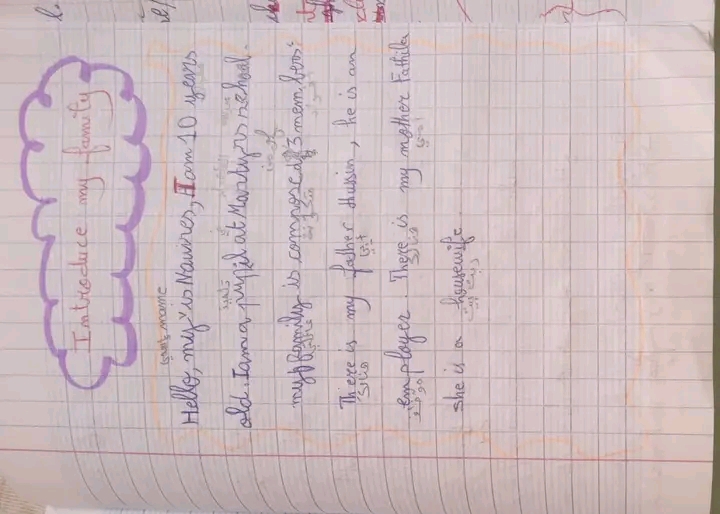 Introduce my family
name
Hello, my is Nawres, I am 10 years
old. I am a pupil at Martyrs school.
تلميذ
my family is composed of 3 members:
There is my father Hussin, he is an
هناك
employer. There is my mother Fathila
موظف هناك أمي
she is a housewife.
ربة بيت